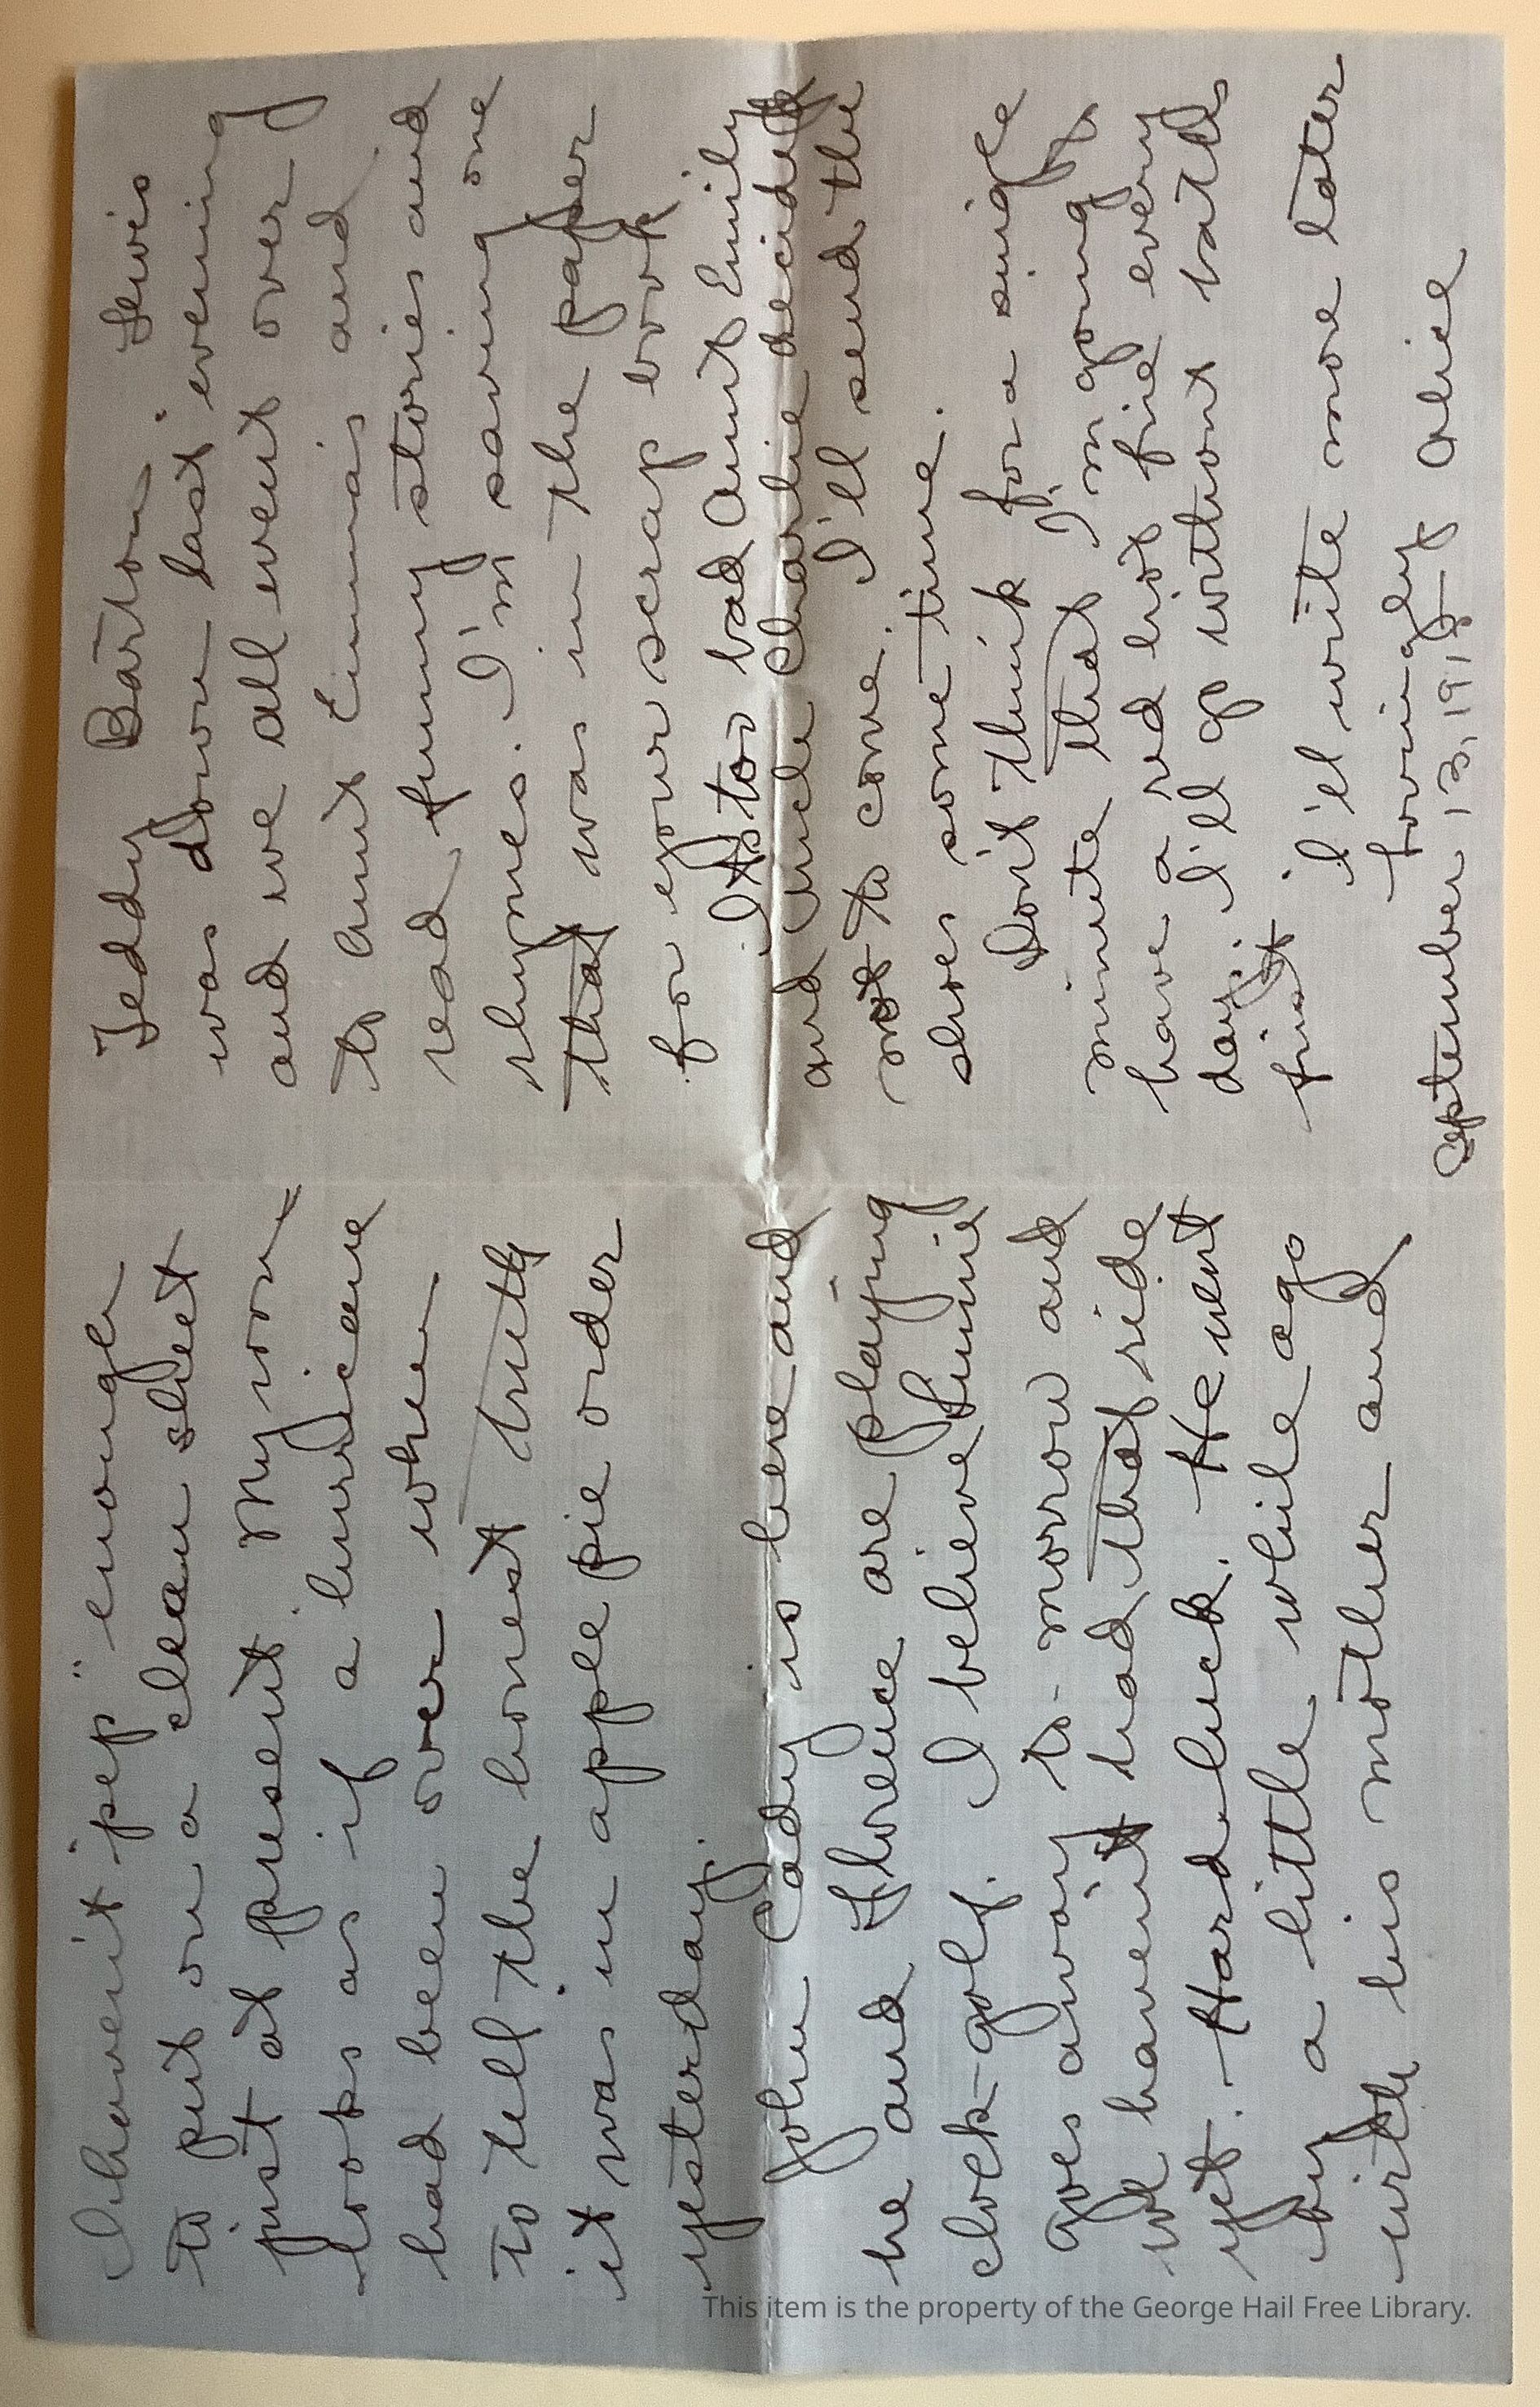 I haven't "pep" enough
to put on a clean sheet
just at present. My room
looks as if a hurricane
had been over when
to tell the honest truth
it was in apple pie order
yesterday.
John Cady is here and
he and Florence are playing
clock-golf. I believe Junie
goes away to-morrow and
we haven't had that ride
yet. Hard luck. He went
by a little while ago
with his mother and
Teddy Barton. Lewis
was down last evening
and we all went over
to Aunt Emma's and
read funny stories and
rhymes. I'm saving one
that was in the paper
for your scrap book.
Its too bad Aunt Emily
and Uncle Charlie decided
not to come. I'll send the
shoes some time.
Don't think for a single
minute that I'm going to
have a red hot fire every
day. I'll go without baths
first. I'll write more later
Lovingly Alice
September 13, 1915
This item is the property of the George Hail Free Library.